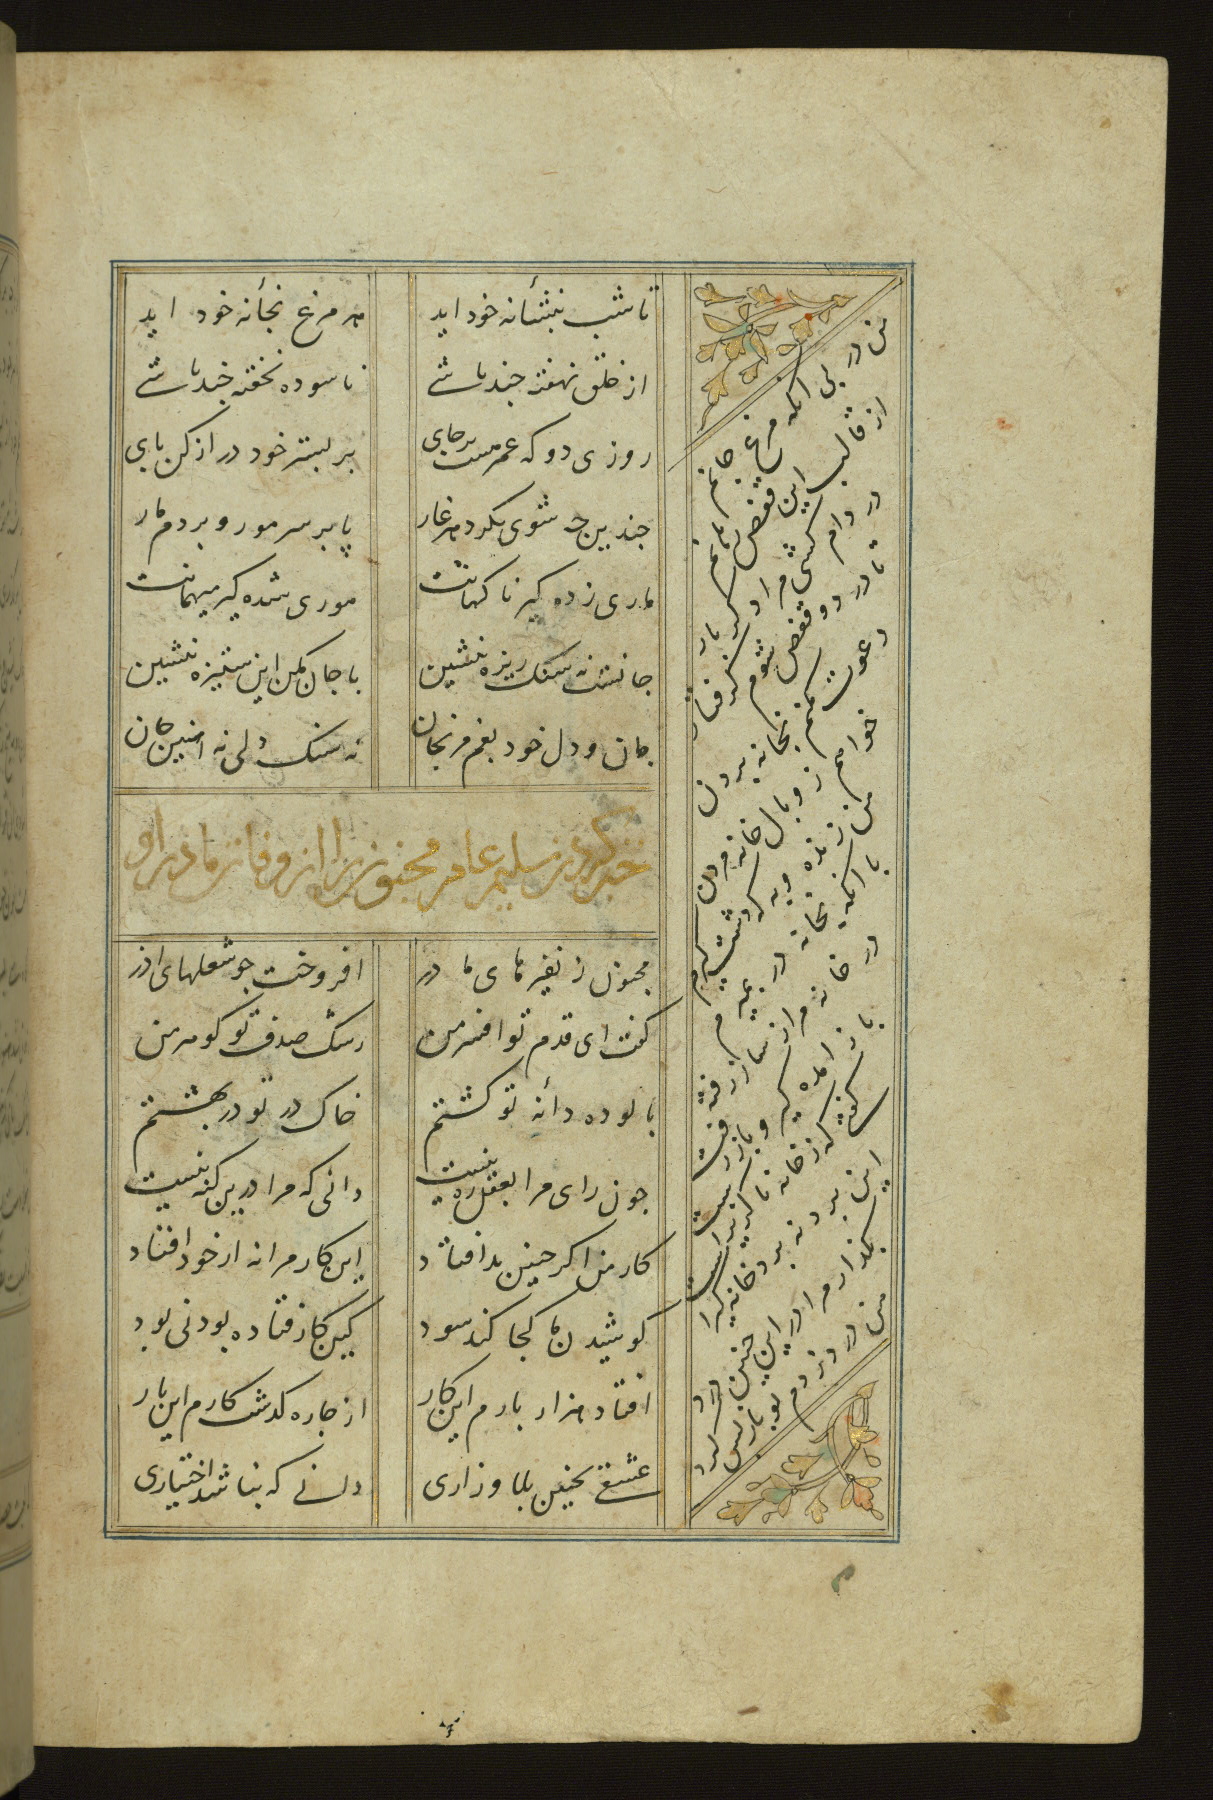 تا شب بنشانه خود اید هر مرغ بخانه خود اید
از خلق نهفته چند باشے ناسوده نخفته چند باشے
روزی دو که عمر هست برجای بر بستر خود دراز کن بای
چندین چه شوی بکرد هر غار پا بر سر مور و بر دم مار
ماری زده کیر ناکهانت موری شده کیر میهمانت
جانست نه سنک ریزه بنشین با جان مکن این ستیزه بنشین
جان و دل خود بغم مرنجان نه سنک دلی نه اهنین جان
خبر کردن سلیم عامر مجنون را از وفات مادر او
مجنون ز نفیرهای مادر افروخت چو شعلهای اذر
کفت ای قدم تو افسر من رنک صدف تو کوهر من
بالوده دانه تو کشتم خاک در تو در بهشتم
چون رای مرا بعقل ره نیست دانی که مرا درین کنه نیست
کار من اکر چنین بد افتاد این کار مرا نه از خود افتاد
کوشیدن ما کجا کند سود کین کار فتاده بودنی بود
افتاد هزار بارم این کار از چاره کدشت کارم این بار
عشقے بچنین بلا و زاری دانے که نباشد اختیاری
من در پی انکه مرغ جانم
از قالب این قفص رهانم
در دام کشی مرا دکر بار
تا در دو قفص شوم کرفتار
دعوت مکنم بخانه بردن
خواهم ز وبال خانه مردن
بکذار مرا در این چنین درد
من در زدم تو باز پس کرد